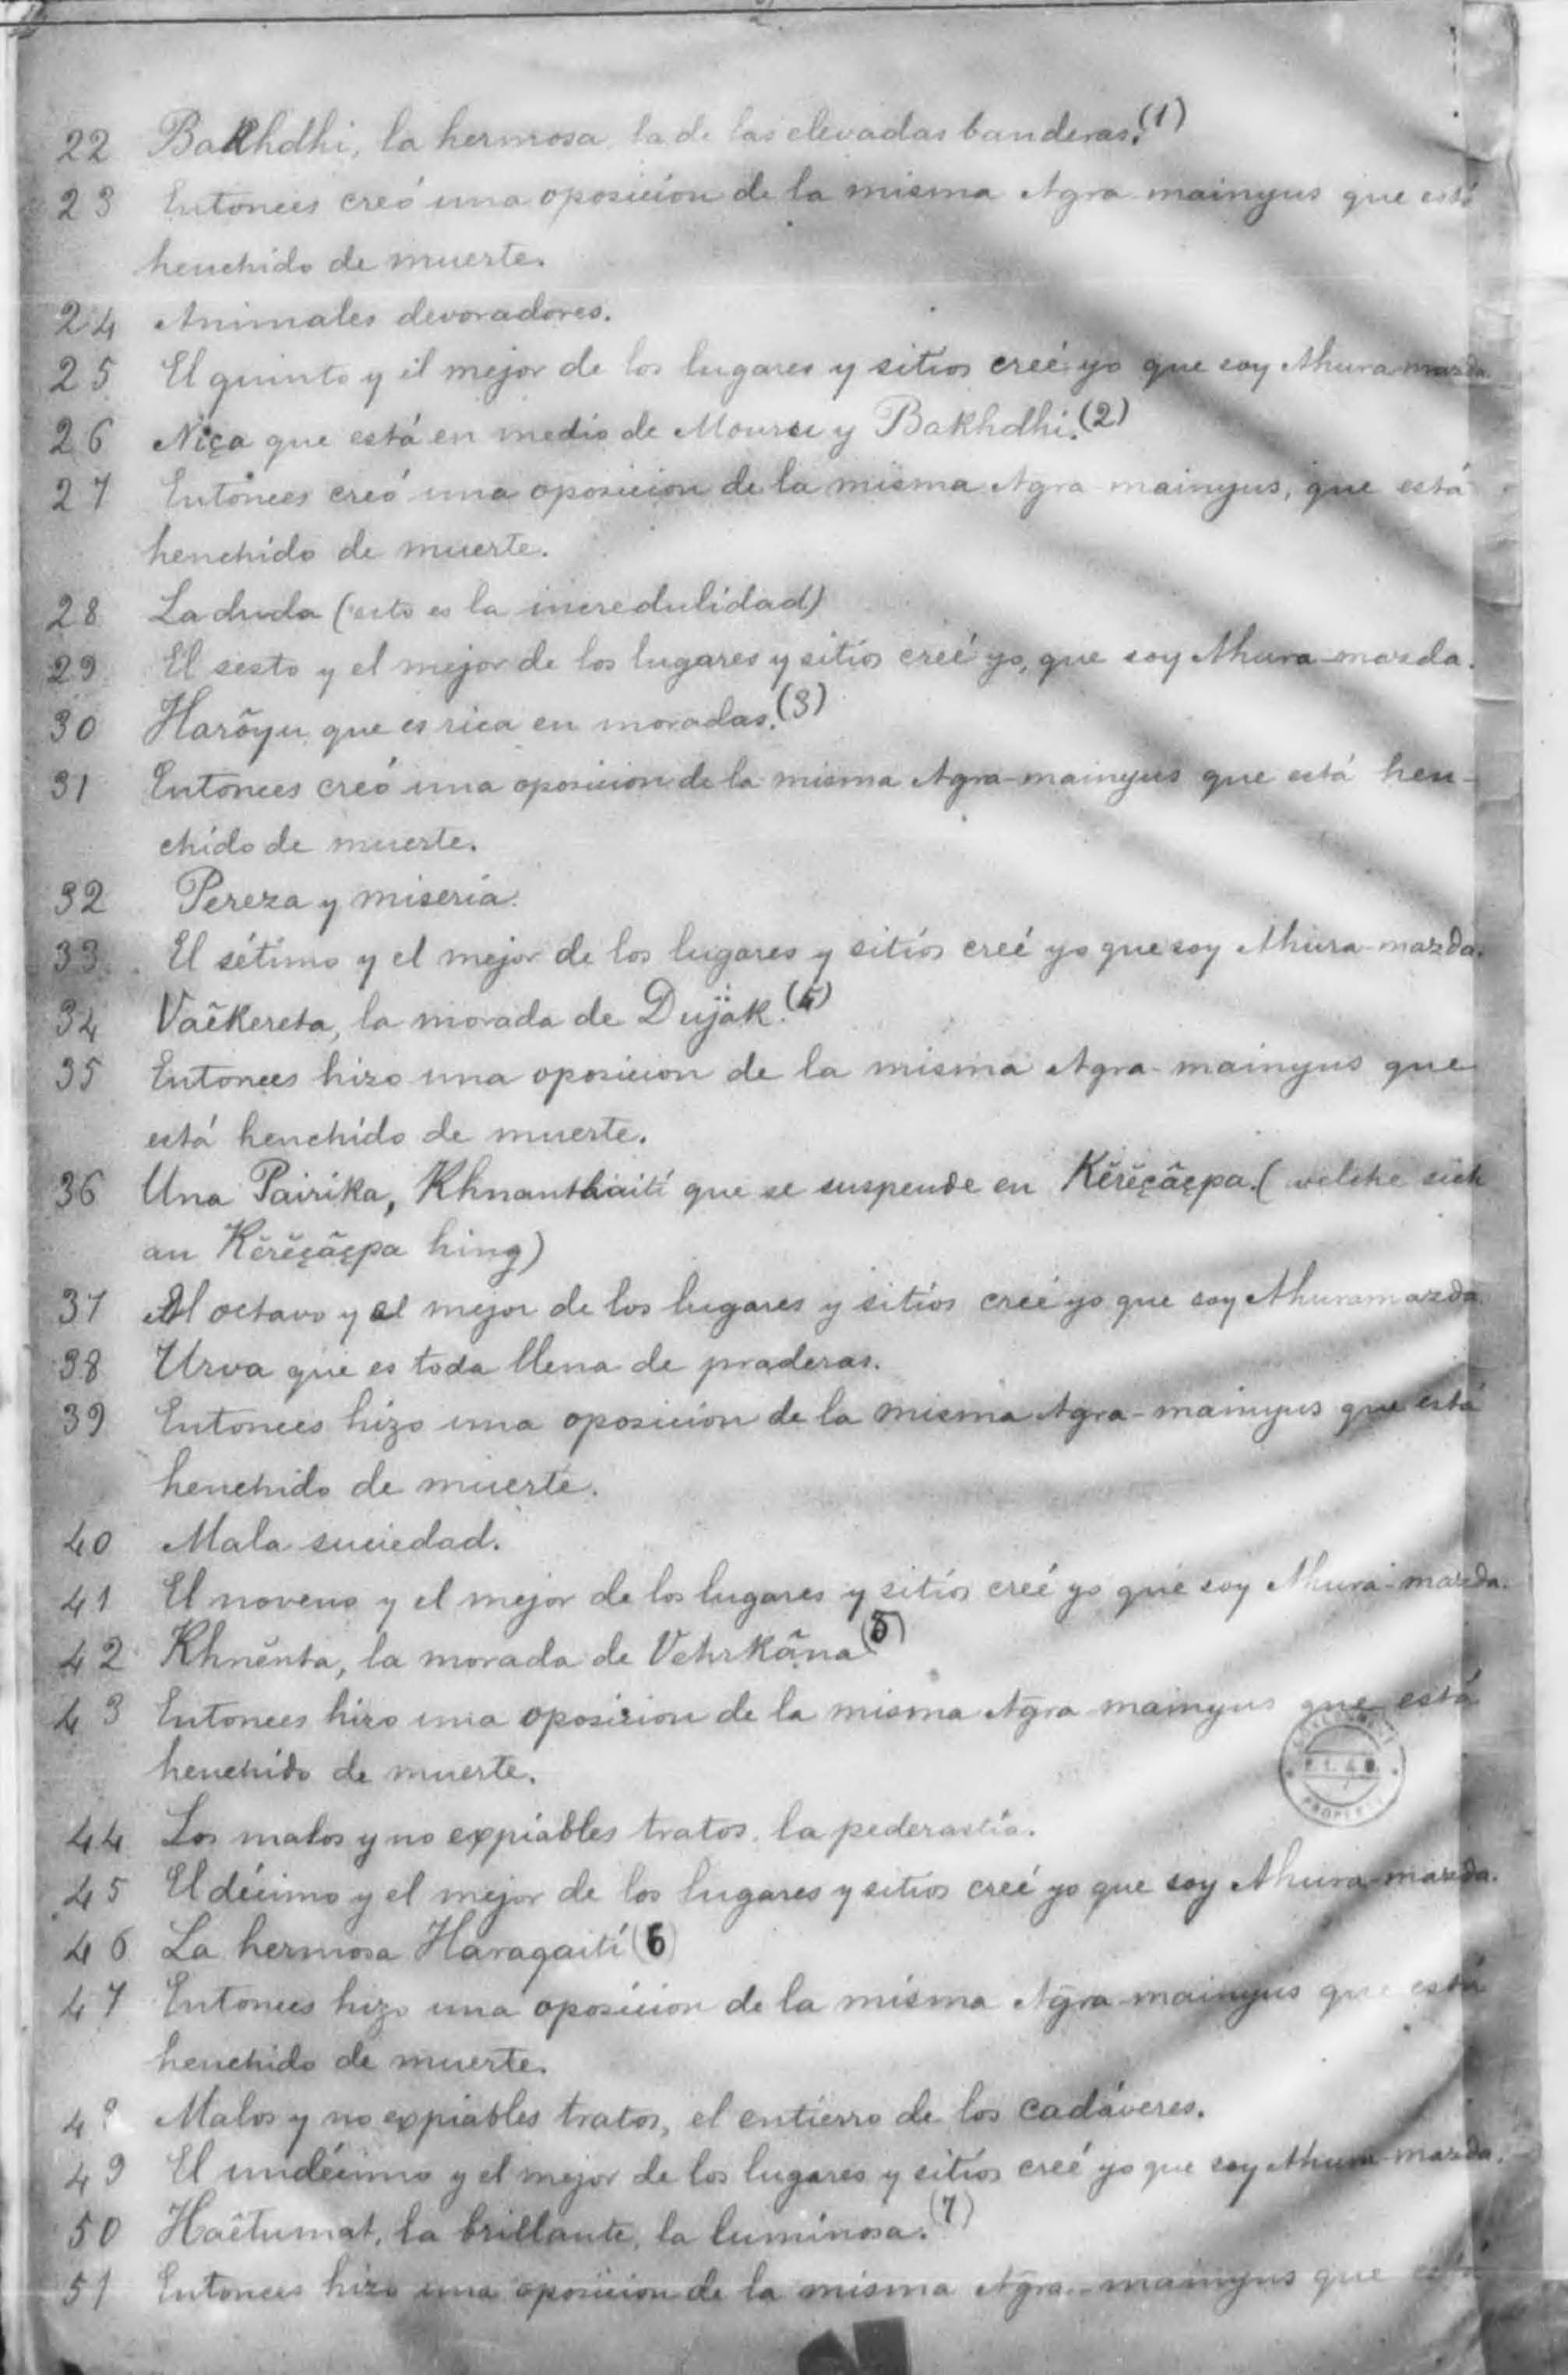 2
22 Bakhdhi, la hermosa, la de las elevadas banderas.(1)
23 Entonces creó una oposicion de la misma Agra-mainyus que está
henchido de muerte.
24 Animales devoradores.
25 El quinto y el mejor de los lugares y sitios creé yo que soy Ahura-mazda
26 Niça que está en medio de Mouru y Bakhdhi.(2)
27 Entonces creó una oposicion de la misma Agra-mainyus, que está
henchido de muerte.
28 La duda (esto es la incredulidad)
29 El sesto y el mejor de los lugares y sitios creé yo, que soy Ahura-mazda.
30 Harôyu que es rica en moradas.(3)
31 Entonces creó una oposicion de la misma Agra-mainyus que está hen-
chido de muerte.
32 Pereza y miseria.
33 El sétimo y el mejor de los lugares y sitios creé yo que soy Ahura-mazda.
34 Vaêkereta, la morada de Dujäk.(4)
35 Entonces hizo una oposicion de la misma Agra-mainyus que
está henchido de muerte.
36 Una Pairika, Khnanthaiti que se suspende en Kĕrĕçâçpa. (welche sich
an Kĕrĕçâçpa hing)
37 El octavo y el mejor de los lugares y sitios creé yo que soy Ahuramazda
38 Urva que es toda llena de praderas.
39 Entonces hizo una oposicion de la misma Agra-mainyus que está
henchido de muerte.
40 Mala suciedad.
41 El noveno y el mejor de los lugares y sitios creé yo que soy Ahura-mazda.
42 Khnĕnta, la morada de Vehrkâna (5)
43 Entonces hizo una oposicion de la misma Agra-mainyus que está
henchido de muerte.
44 Los malos y no expiables tratos, la pederastia.
45 El décimo y el mejor de los lugares y sitios creé yo que soy Ahura-mazda.
46 La hermosa Haraqaiti (6)
47 Entonces hizo una oposicion de la misma Agra-mainyus que está
henchido de muerte.
48 Malos y no expiables tratos, el entierro de los cadáveres.
49 El undécimo y el mejor de los lugares y sitios creé yo que soy Ahura-mazda.
50 Haêtumat, la brillante, la luminosa.(7)
51 Entonces hizo una oposicion de la misma Agra-mainyus que está